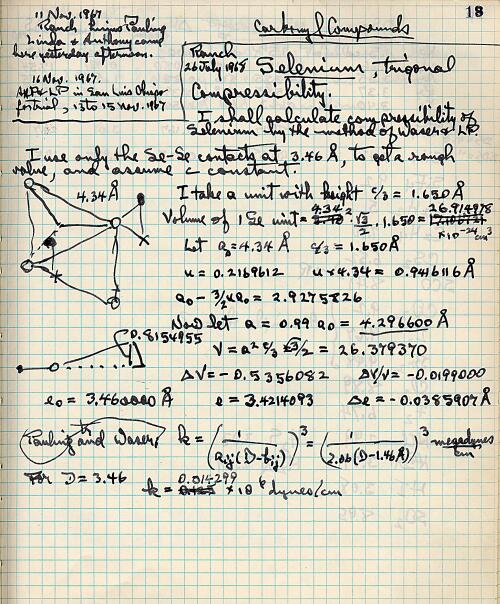 18
Carbonyl Compounds
11 Nov. 1967
Ranch Linus Pauling
Linda & Anthony came
here yesterday afternoon.
16 Nov. 1967.
AHP & LP in San Luis Obispo
for trial, 13 to 15 Nov. 1967
Ranch
26 July 1968 Selenium, trigonal
Compressibility.
I shall calculate compressibility of
Selenium by the method of Waser & LP.
I use only the Se-Se contacts at 3.46 Å, to get a rough
value, and assume c constant.
4.34 Å
I take a unit with height c/3 = 1.650 Å
Volume of 1 Se unit = 4.34² · √3/2 · 1.650 = 26.914978 × 10⁻²⁴ cm³
Let a₀ = 4.34 Å c/3 = 1.650 Å
u = 0.2169612 u × 4.34 = 0.9416116 Å
a₀ - 3/2 u a₀ = 2.9275826
Now let a = 0.99 a₀ = 4.296600 Å
0.8154955
V = a² c/3 √3/2 = 26.379370
ΔV = - 0.5356082 ΔV/V = -0.0199000
e₀ = 3.460000 Å e = 3.4214093 Δe = -0.0385907 Å
Pauling and Waser, k = (1/(aij(D-bij)))³ = (1/(2.06(D-1.46Å)))³ megadynes/cm
For D = 3.46
k = 0.014299 × 10⁶ dynes/cm